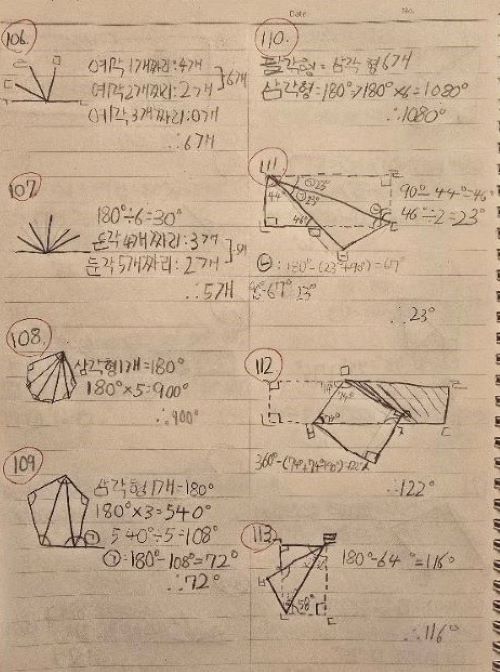 Date
No.
106.
예각 1개짜리: 4개
예각 2개짜리: 2개
6개
예각 3개짜리: 0개
∴ 6개
107.
180°÷6=30°
둔각 4개짜리: 3개
둔각 5개짜리: 2개
5개
∴ 5개
108.
삼각형 1개=180°
180°×5=900°
∴ 900°
109
삼각형 1개=180°
180°×3=540°
540°÷5=108°
㉠: 180°-108°=72°
∴ 72°
110.
팔각형=삼각형 6개
삼각형=180°→180°×6=1080°
∴ 1080°
111
44°
23°
23°
46°
90°-44°=46°
46°÷2=23°
: 180°-(23°+90°)=67°
∴ 23°
112
74°
∴ 122°
113.
58°
180°-64°=116°
∴ 116°